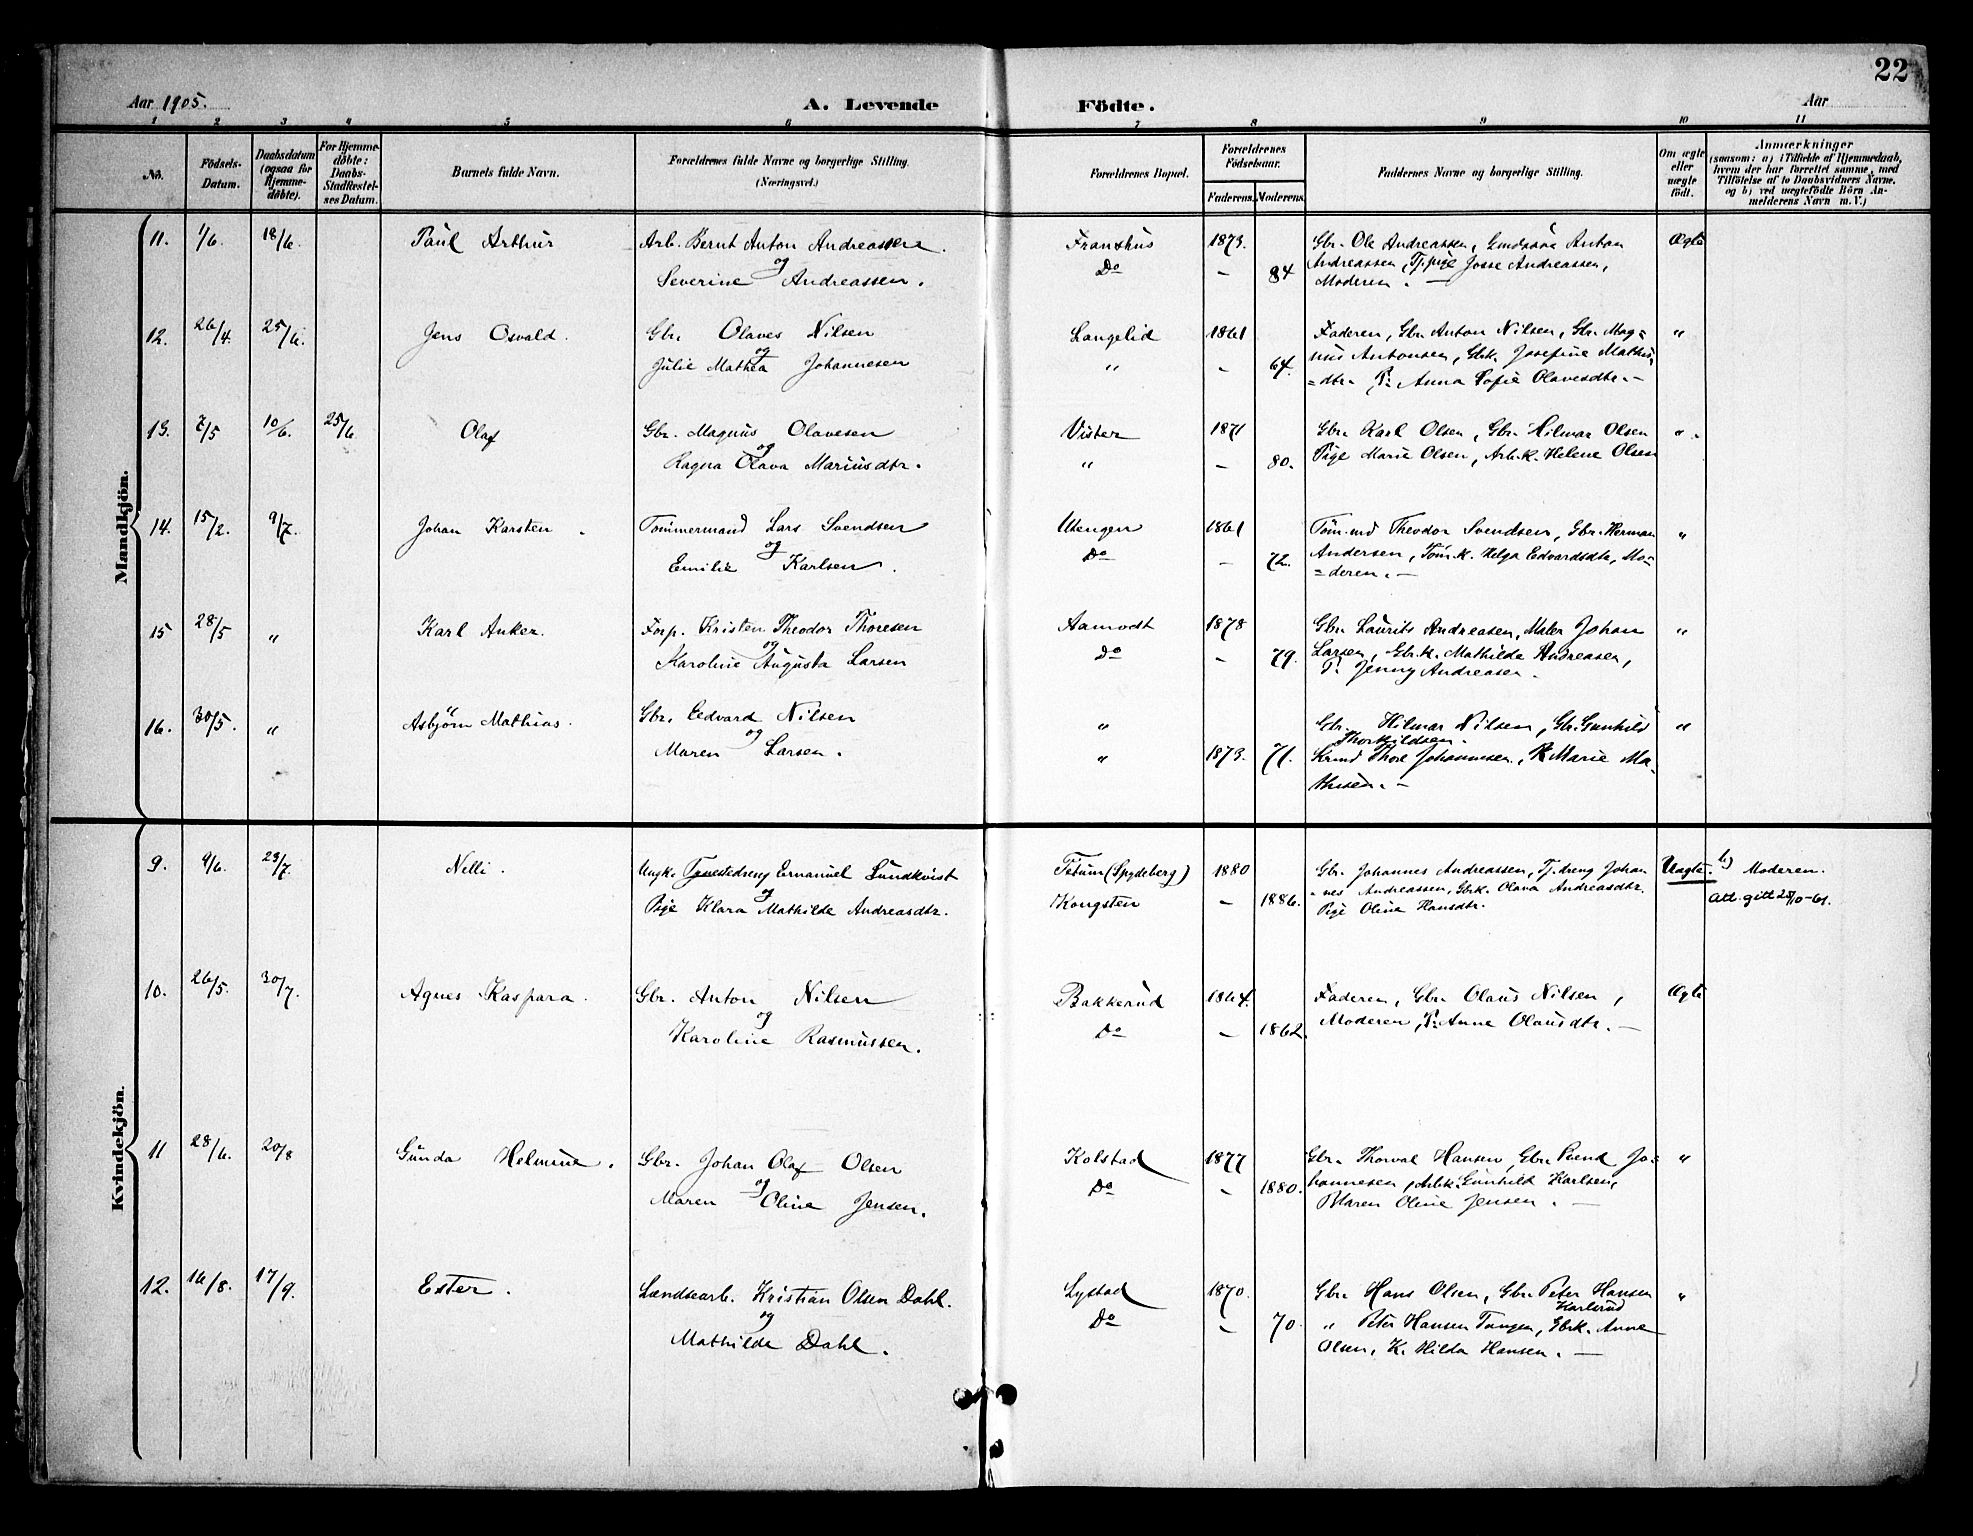 22
Aar 1905. A. Levende Födte. Aar
1 2 3 4 5 6 7 8 9 10 11
No. Födsels-Datum. Daabsdatum (ogsaa for Hjemme-döbte). For Hjemme-döbte: Daabs-Stadfestel-ses Datum. Barnets fulde Navn. Forældrenes fulde Navne og borgerlige Stilling. (Næringsvei.) Forældrenes Bopæl. Forældrenes Födselsaar. Faderens. Moderens. Faddernes Navne og borgerlige Stilling. Om ægte eller uægte födt. Anmærkninger (saasom: a) i Tilfælde af Hjemmedaab, hvem der har forrettet samme, med Tilföielse af to Daabsvidners Navne, og b) ved uægtefödte Börn An-melderens Navn m. V.)
Mandkjön.
11. 1/6. 18/6. Paul Arthur Arb. Bernt Anton Andreassen. Franshus 1873. Gbr. Ole Andreassen, Anton Ægte
og
Severine Andreassen. Do – 84 Andreassen, Tj.pige Josse Andreassen,
Moderen. —
12. 26/4. 25/6. Jens Osvald. Gbr. Olaves Nilsen Langelid 1861 Faderen, Gbr. Anton Nilsen, Gbr. Mag= "
og
Julie Mathea Johannesen " – 64. nus Antonsen, Gbk. Josefine Mathis
=dtr. P. Anna Sofie Olavesdtr. —
13. 7/5 10/6. 25/6 Olaf Gbr. Magnus Olavesen Vister 1871 Gbr. Karl Olsen, Gbr. Hilmar Olsen "
og
Ragna Olava Mariusdtr. " – 80. Pige Marie Olsen, Arb.k. Helene Olsen
14. 15/2. 9/7. Johan Karsten. Tømmermand Lars Svendsen Utengen 1861 Töm.md Theodor Svendsen, Gbr. Herman "
og
Emilie Karlsen. Do – 72. Andersen, Töm.k. Helga Edvardsdtr, Mo=
=deren. —
15 28/5 " Karl Anker. Forp. Kristen Theodor Thoresen Aamodt 1878 Gbr. Laurits Andreasen, Maler Johan "
og
Karoline Augusta Larsen Do – 79. Larsen, Gbr.k. Mathilde Andreasen,
P. Jenny Andreasen.
16. 30/5. " Asbjörn Mathias. Gbr. Edvard Nilsen " Gbr. Hilmar Nilsen, Gbr. Gunhild "
og Thorkildsen.
Maren Larsen. " 1873. 71. Thore Johannesen, P. Marie Ma-
thisen. —
Kvindekjön.
9. 9/6. 23/7. Nelli. Ungk. Tjenestedreng Emanuel Lundkvist Tetum (Spydeberg) 1880 Gbr. Johannes Andreassen, Tj.dreng Johan Uægte. b) Moderen.
og
Pige Klara Mathilde Andreasdtr. Kongsten – 1886. nes Andreassen, Gbrk. Olava Andreasdtr. Att. gitt 25/10-61.
Pige Oline Hansdtr.
10. 26/5. 30/7. Agnes Kaspara. Gbr. Anton Nilsen Bakkerud 1864. Faderen, Gbr. Olaus Nilsen, Ægte
og
Karoline Rasmussen. Do – 1862. Moderen, P. Anne Olausdtr. —
11 28/6. 20/8 Gunda Helmine. Gbr. Johan Olaf Olsen Kolstad 1877 Gbr. Thorval Hansen, Gbr. Svend Jo= "
og
Maren Oline Jensen. Do – 1880. hannesen, Arbk. Gunhild Karlsen,
P. Maren Oline Jensen. —
12. 16/8. 17/9. Ester. Landsearb. Kristian Olsen Dahl. Lystad 1870. Gbr. Hans Olsen, Gbr. Peter Hansen "
og Karlsrud
Mathilde Dahl. Do – 70. " Peter Hansen Tangen, Gbrk. Anne
Olsen, K. Hilda Hansen. —